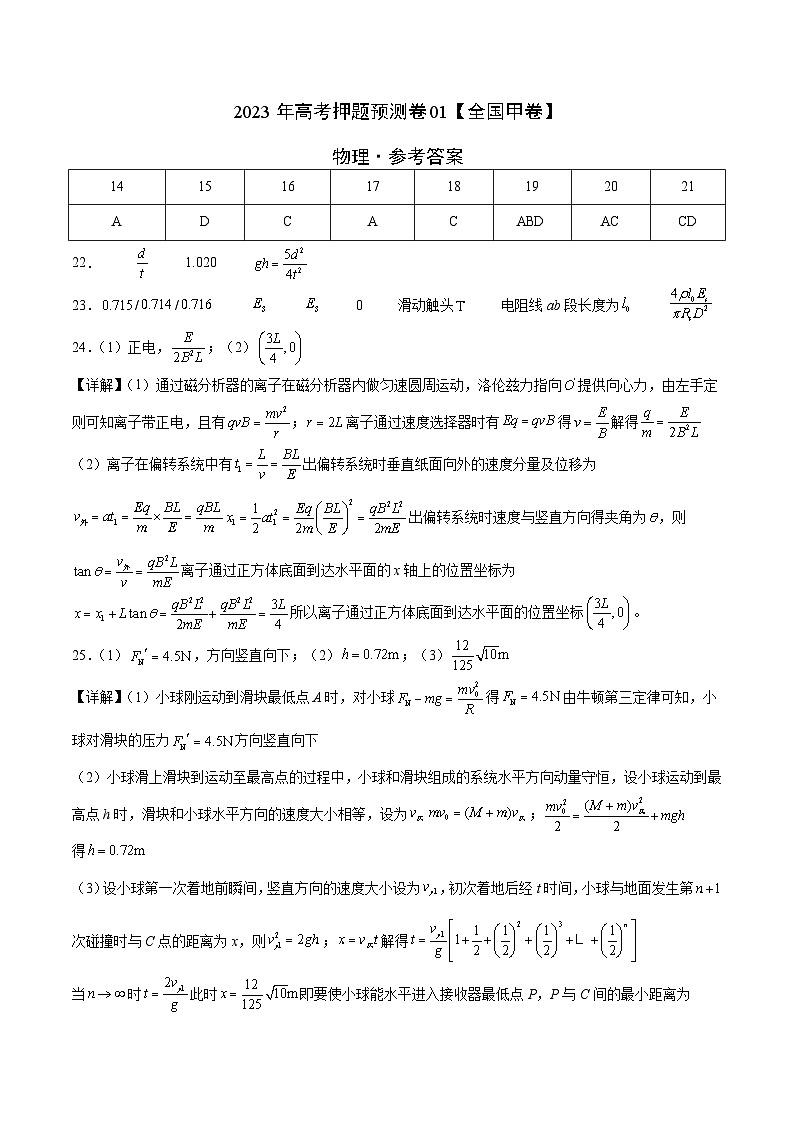 2023年高考押题预测卷01【全国甲卷】
物理·参考答案
14 15 16 17 18 19 20 21
A D C A C ABD AC CD
22. d/t 1.020 gh = 5d²/4t²
23. 0.715 / 0.714 / 0.716 E_S E_S 0 滑动触头T 电阻线ab段长度为l₀ 4ρl₀E_s/πR_sD²
24.(1)正电,E/2B²L;(2)(3L/4,0)
【详解】(1)通过磁分析器的离子在磁分析器内做匀速圆周运动,洛伦兹力指向O′提供向心力,由左手定
则可知离子带正电,且有qvB = mv²/r;r = 2L离子通过速度选择器时有Eq = qvB得v = E/B解得q/m = E/2B²L
(2)离子在偏转系统中有t₁ = L/v = BL/E出偏转系统时垂直纸面向外的速度分量及位移为
v外 = at₁ = Eq/m × BL/E = qBL/m x₁ = 1/2 at₁² = Eq/2m (BL/E)² = qB²L²/2mE 出偏转系统时速度与竖直方向得夹角为θ,则
tanθ = v外/v = qB²L/mE离子通过正方体底面到达水平面的x轴上的位置坐标为
x = x₁ + Ltanθ = qB²L²/2mE + qB²L²/mE = 3L/4所以离子通过正方体底面到达水平面的位置坐标(3L/4,0)。
25.(1)F_N′ = 4.5N,方向竖直向下;(2)h = 0.72m;(3)12/125 √10m
【详解】(1)小球刚运动到滑块最低点A时,对小球F_N − mg = mv₀²/R得F_N = 4.5N由牛顿第三定律可知,小
球对滑块的压力F_N′ = 4.5N方向竖直向下
(2)小球滑上滑块到运动至最高点的过程中,小球和滑块组成的系统水平方向动量守恒,设小球运动到最
高点h时,滑块和小球水平方向的速度大小相等,设为v共 mv₀ = (M + m)v共;mv₀²/2 = (M + m)v共²/2 + mgh
得h = 0.72m
(3)设小球第一次着地前瞬间,竖直方向的速度大小设为v⊥1,初次着地后经t时间,小球与地面发生第n+1
次碰撞时与C点的距离为x,则v⊥1² = 2gh;x = v共t解得t = v⊥1/g [1 + 1/2 + (1/2)² + (1/2)³ + L + (1/2)ⁿ]
当n → ∞时t = 2v⊥1/g此时x = 12/125 √10m即要使小球能水平进入接收器最低点P,P与C间的最小距离为